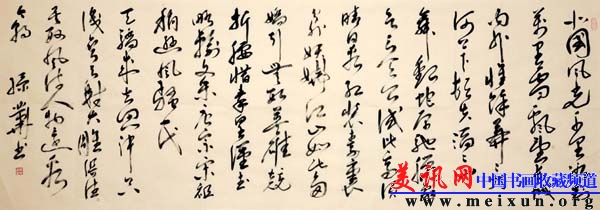 北国风光千里冰封
万里雪飘望长城
内外惟余莽々
河上下顿失滔々山
舞银蛇原驰蜡象
欲与天公试比高须
晴日看红装素裹
分外妖娆江山如此多
娇引无数英雄竞
折腰惜秦皇汉武
略输文采唐宗宋祖
稍逊风骚一代
天骄成吉思汗只
识弯弓射大雕俱往
矣数风流人物还看
今朝 书
美讯网 中国书画收藏频道
www.meixun.org